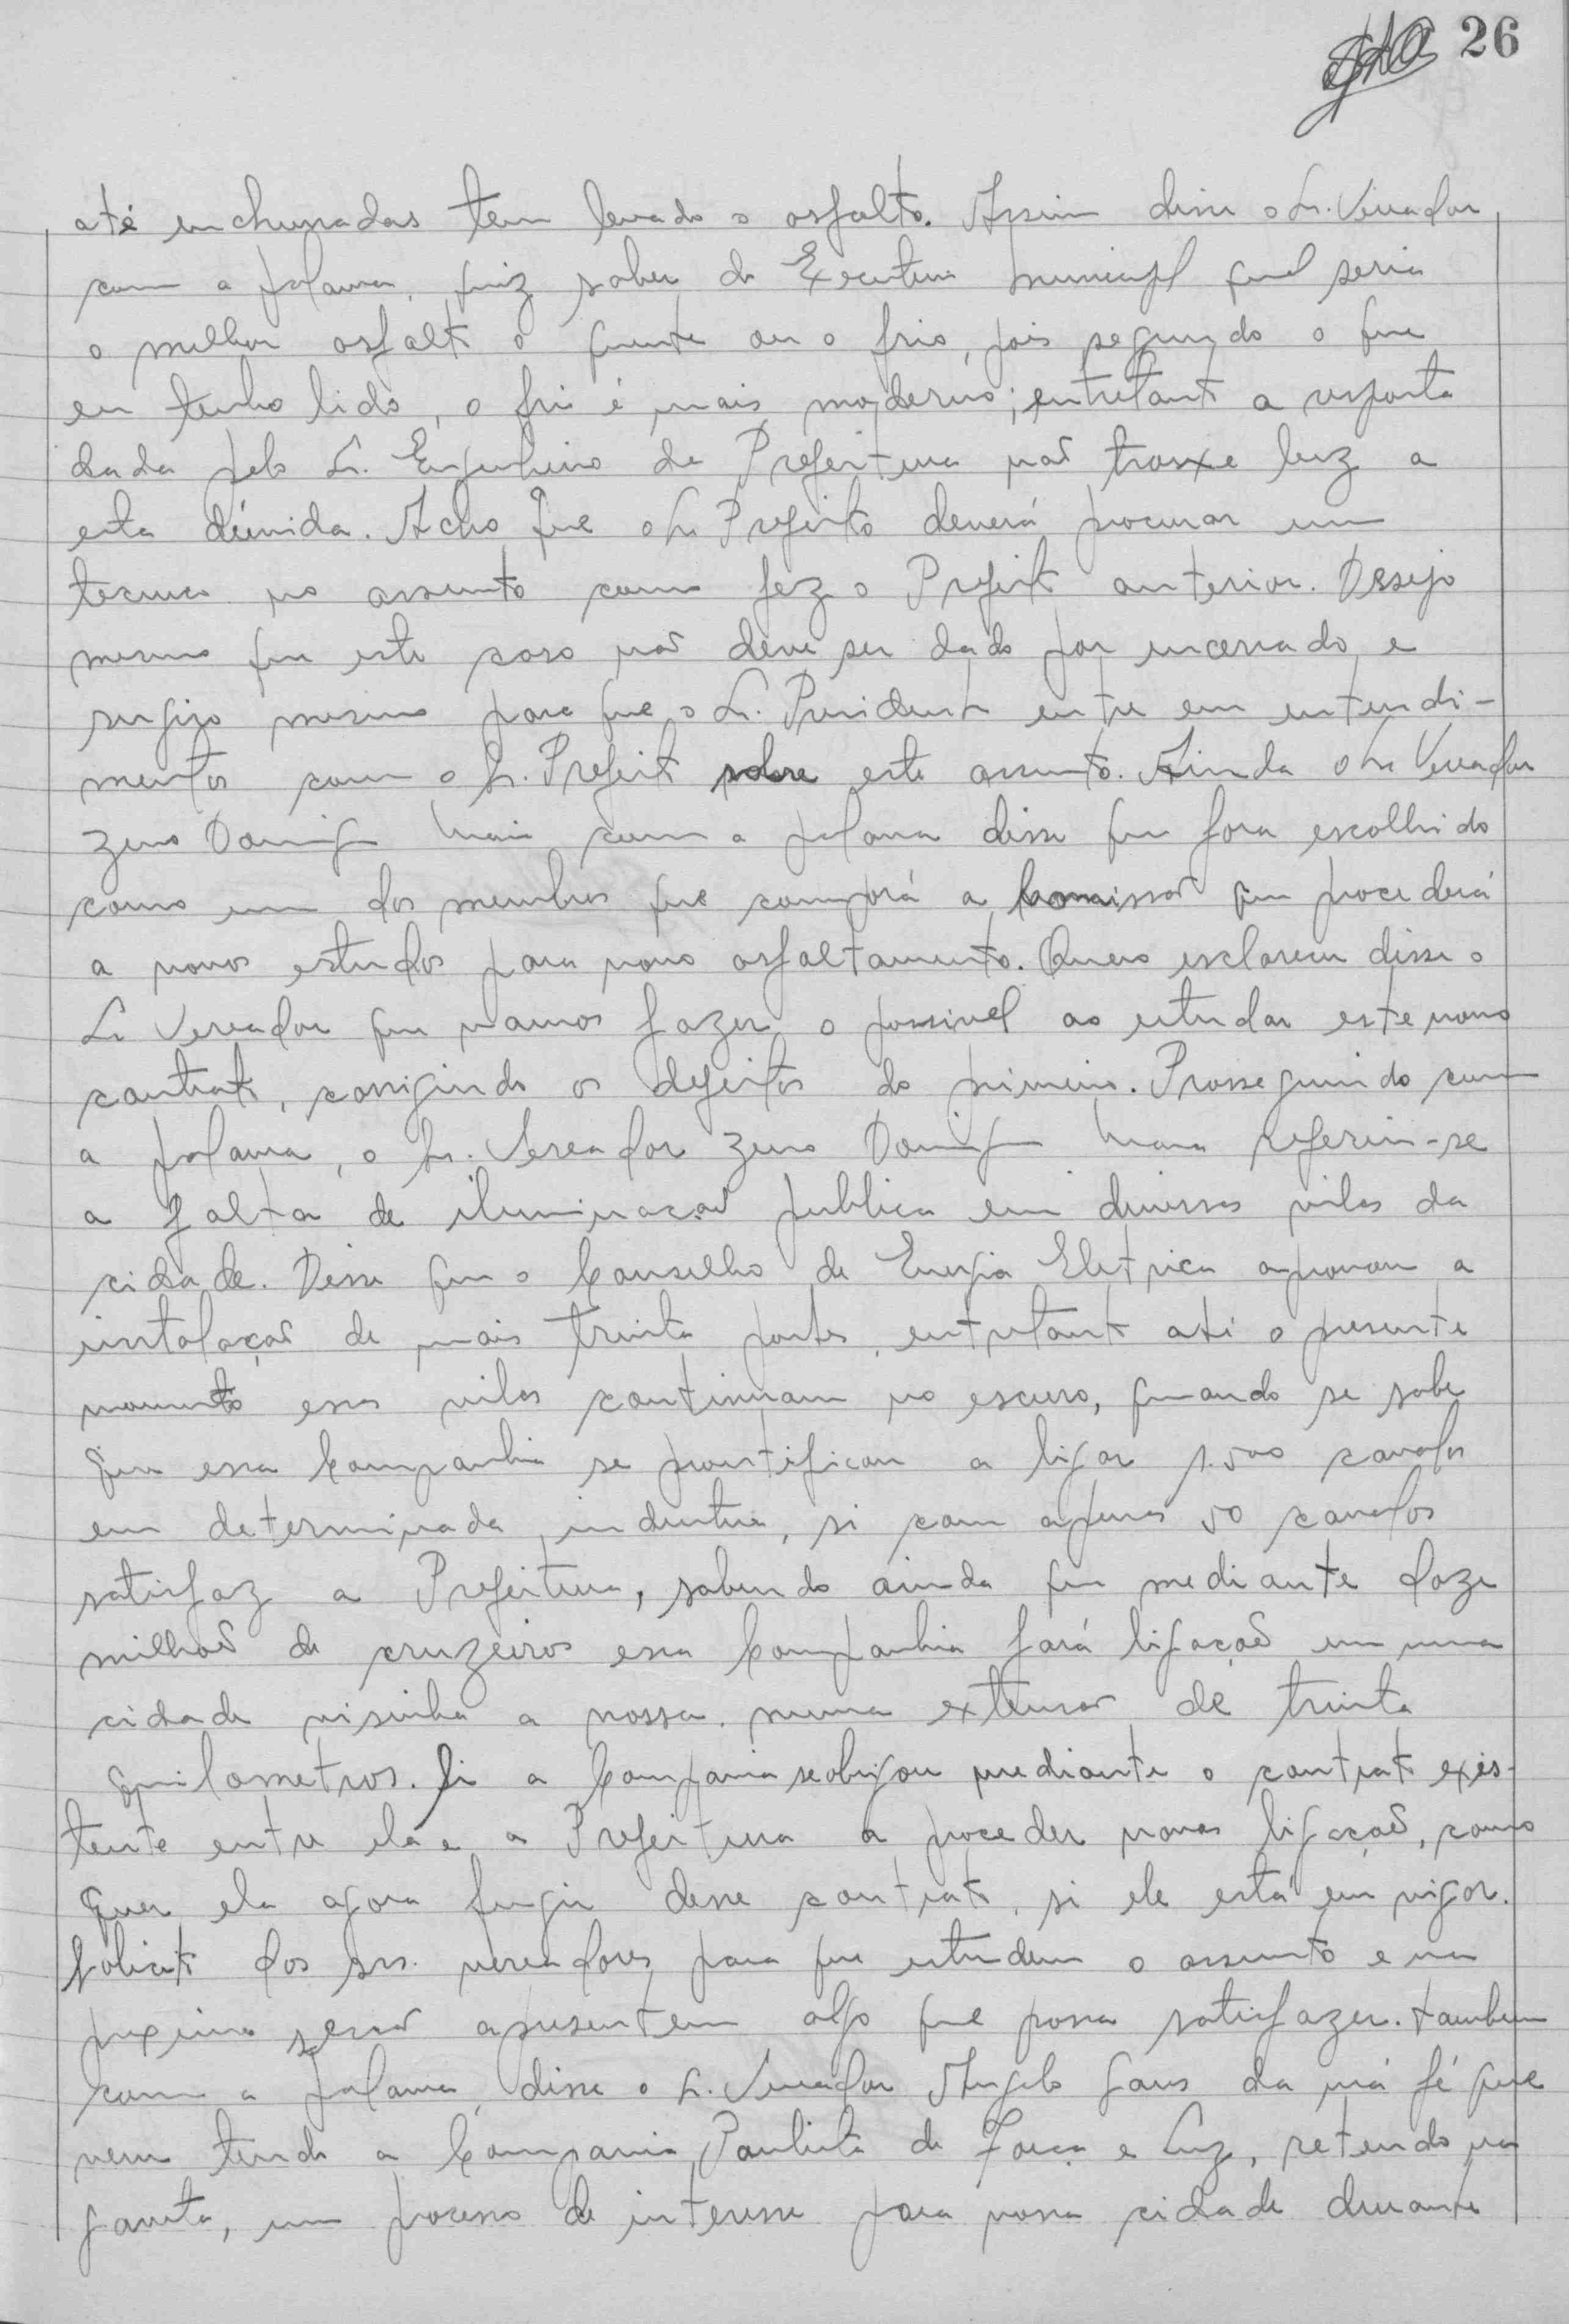 26
até enchurradas tem levado o asfalto. Assim disse o Sr. Vereador
com a palavra, quiz saber do Executivo municipal qual seria
o melhor asfalto o quente ou o frio, pois segundo o que
eu tenho lido, o frio é mais moderno; entretanto a resposta
dada pelo Sr. Engenheiro da Prefeitura não trouxe luz a
esta dúvida. Acho que o Sr Prefeito deverá procurar um
tecnico no assunto como fez o Prefeito anterior. Desejo
mesmo que este caso não deve ser dado por encerrado, e
sugiro mesmo para que o Sr. Presidente entre em entendi-
mentos com o Sr. Prefeito sobre este assunto. Ainda o Sr Vereador
Zeno Domingues Maia com a palavra disse que fora escolhido
como um dos membros que comporá a Comissão que procederá
a novos estudos para novo asfaltamento. Quero esclarecer disse o
Sr Vereador que vamos fazer o possivel ao estudar este novo
contrato, corrigindo os defeitos do primeiro. Prosseguindo com
a palavra, o Sr. Vereador Zeno Domingues Maia referiu-se
a falta de iluminação publica em diversas vilas da
cidade. Disse que o Conselho de Energia Eletrica aprovou a
instalação de mais trinta postes, entretanto até o presente
momento essas vilas continuam no escuro, quando se sabe
que essa Companhia se prontificou a ligar 1.500 cavalos
em determinada industria, si com apenas 50 cavalos
satisfaz a Prefeitura, sabendo ainda que mediante doze
milhões de cruzeiros essa Companhia fará ligação em uma
cidade visinha a nossa, numa extensão de trinta
quilometros. Si a Compania se obrigou mediante o contrato exis-
tente entre ela e a Prefeitura a proceder novas ligações, como
quer ela agora fugir desse contrato, si ele está em vigor.
Solicito dos srs. vereadores para que estudem o assunto e na
proxima sessão apresentem algo que possa satisfazer. Tambem
com a palavra, disse o Sr. Vereador Angelo da má fé que
vem tendo a Compania Paulista de Força e Luz, retendo na
gaveta, um processo de interesse para nossa cidade durante